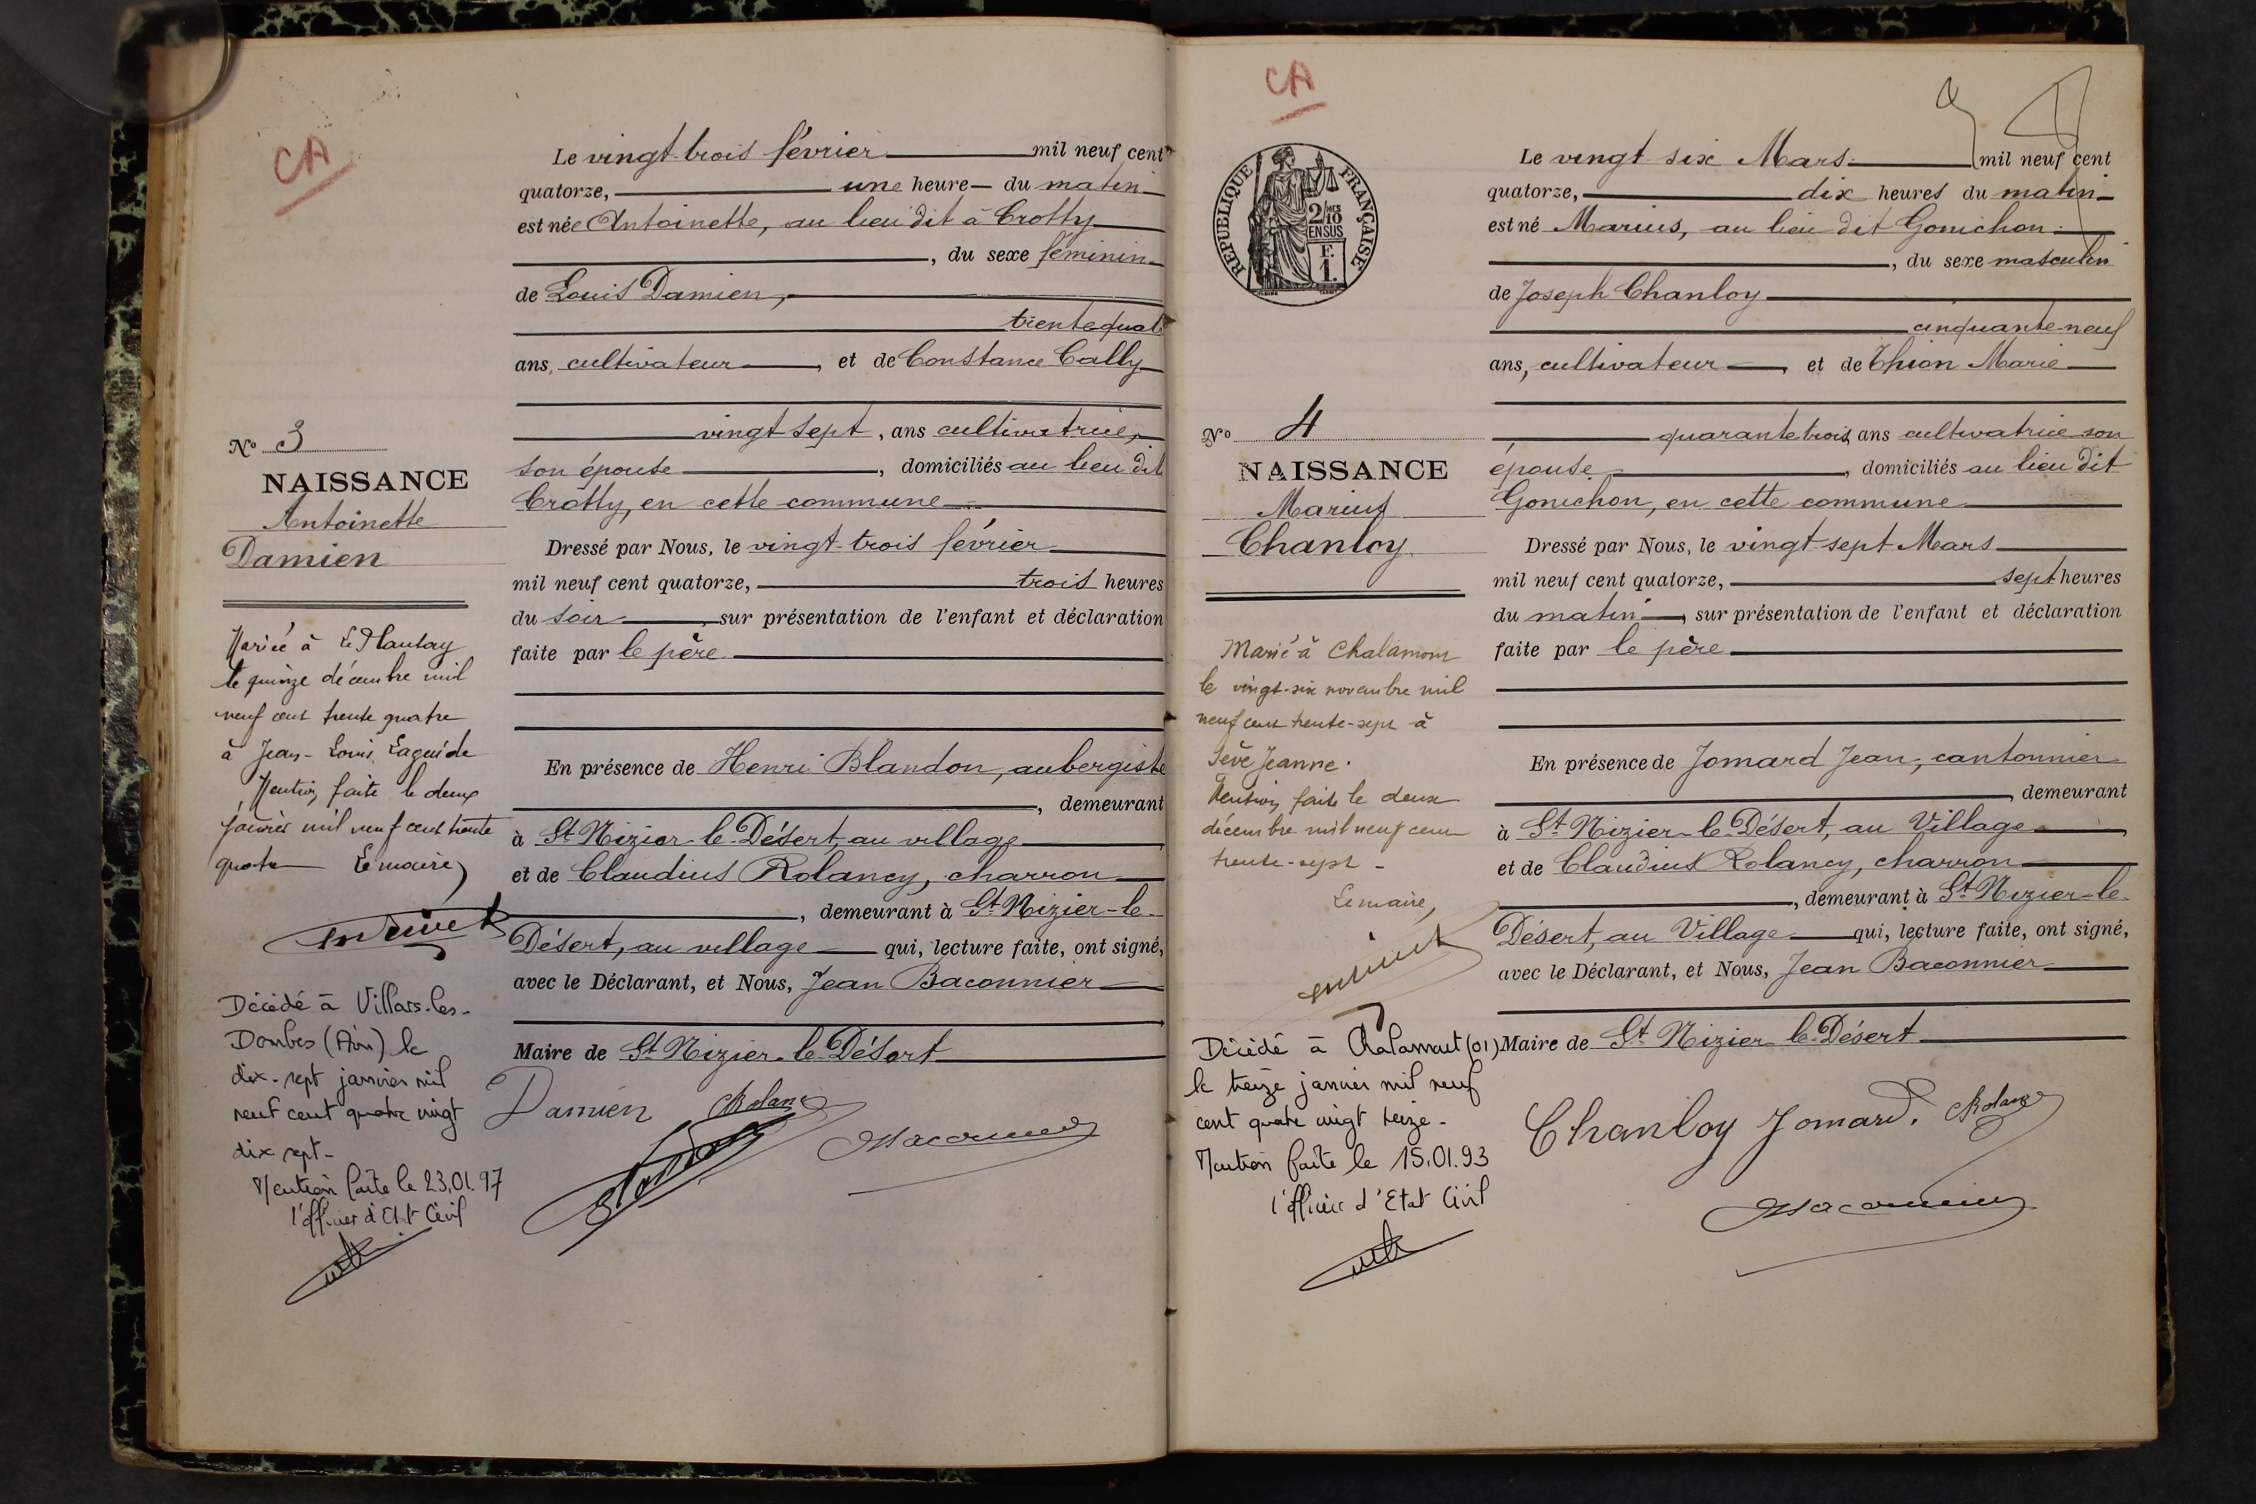 CA
Le vingt-trois février mil neuf cent
quatorze, une heure du matin
est née Antoinette, au lieu dit à Crotty
, du sexe féminin
de Louis Damien,
trente quat
ans, cultivateur, et de Constance Cally
vingt sept, ans cultivatrice,
son épouse, domiciliés au lieu dit
Crotty, en cette commune
Dressé par Nous, le vingt-trois février
mil neuf cent quatorze, trois heures
du soir, sur présentation de l'enfant et déclaration
faite par le père
En présence de Henri Blandon, aubergiste
, demeurant
à St Nizier-le-Désert, au village
et de Claudius Rolancy, charron
, demeurant à St Nizier-le-
Désert, au village qui, lecture faite, ont signé,
avec le Déclarant, et Nous, Jean Baconnier
Maire de St Nizier-le-Désert
Damien CRolancy
Baconnier
No 3
NAISSANCE
Antoinette
Damien
Mariée à Le Plantay
le quinze décembre mil
neuf cent trente quatre
à Jean-Louis
Mention faite le deux
janvier mil neuf cent trente
quatre Le maire
Décédé à Villars-les-
Dombes (Ain) le
dix-sept janvier mil
neuf cent quatre vingt
dix sept-
Mention faite le 23.01.97
l'officier d'Etat Civil
CA
REPUBLIQUE FRANÇAISE
2/10 MES
EN SUS
F.
1.
Le vingt six Mars mil neuf cent
quatorze, dix heures du matin
est né Marius, au lieu dit Gonichon
, du sexe masculin
de Joseph Chanloy
cinquante-neuf
ans, cultivateur, et de Thion Marie
quarante trois, ans cultivatrice son
épouse, domiciliés au lieu dit
Gonichon, en cette commune
Dressé par Nous, le vingt-sept Mars
mil neuf cent quatorze, sept heures
du matin, sur présentation de l'enfant et déclaration
faite par le père
En présence de Jomard Jean, cantonnier
, demeurant
à St Nizier-le-Désert, au Village
et de Claudius Rolancy, charron
, demeurant à St Nizier-le-
Désert, au Village qui, lecture faite, ont signé,
avec le Déclarant, et Nous, Jean Baconnier
Maire de St Nizier le-Désert
Chanloy Jomard. CRolancy
Baconnier
No 4
NAISSANCE
Marius
Chanloy
Marié à Chalamont
le vingt-six novembre mil
neuf cent trente-sept à
Sève Jeanne.
Mention faite le deux
décembre mil neuf cent
trente-sept -
Le maire,
Décédé à Chalamont (01)
le treize janvier mil neuf
cent quatre vingt treize-
Mention faite le 15.01.93
l'officier d'Etat Civil